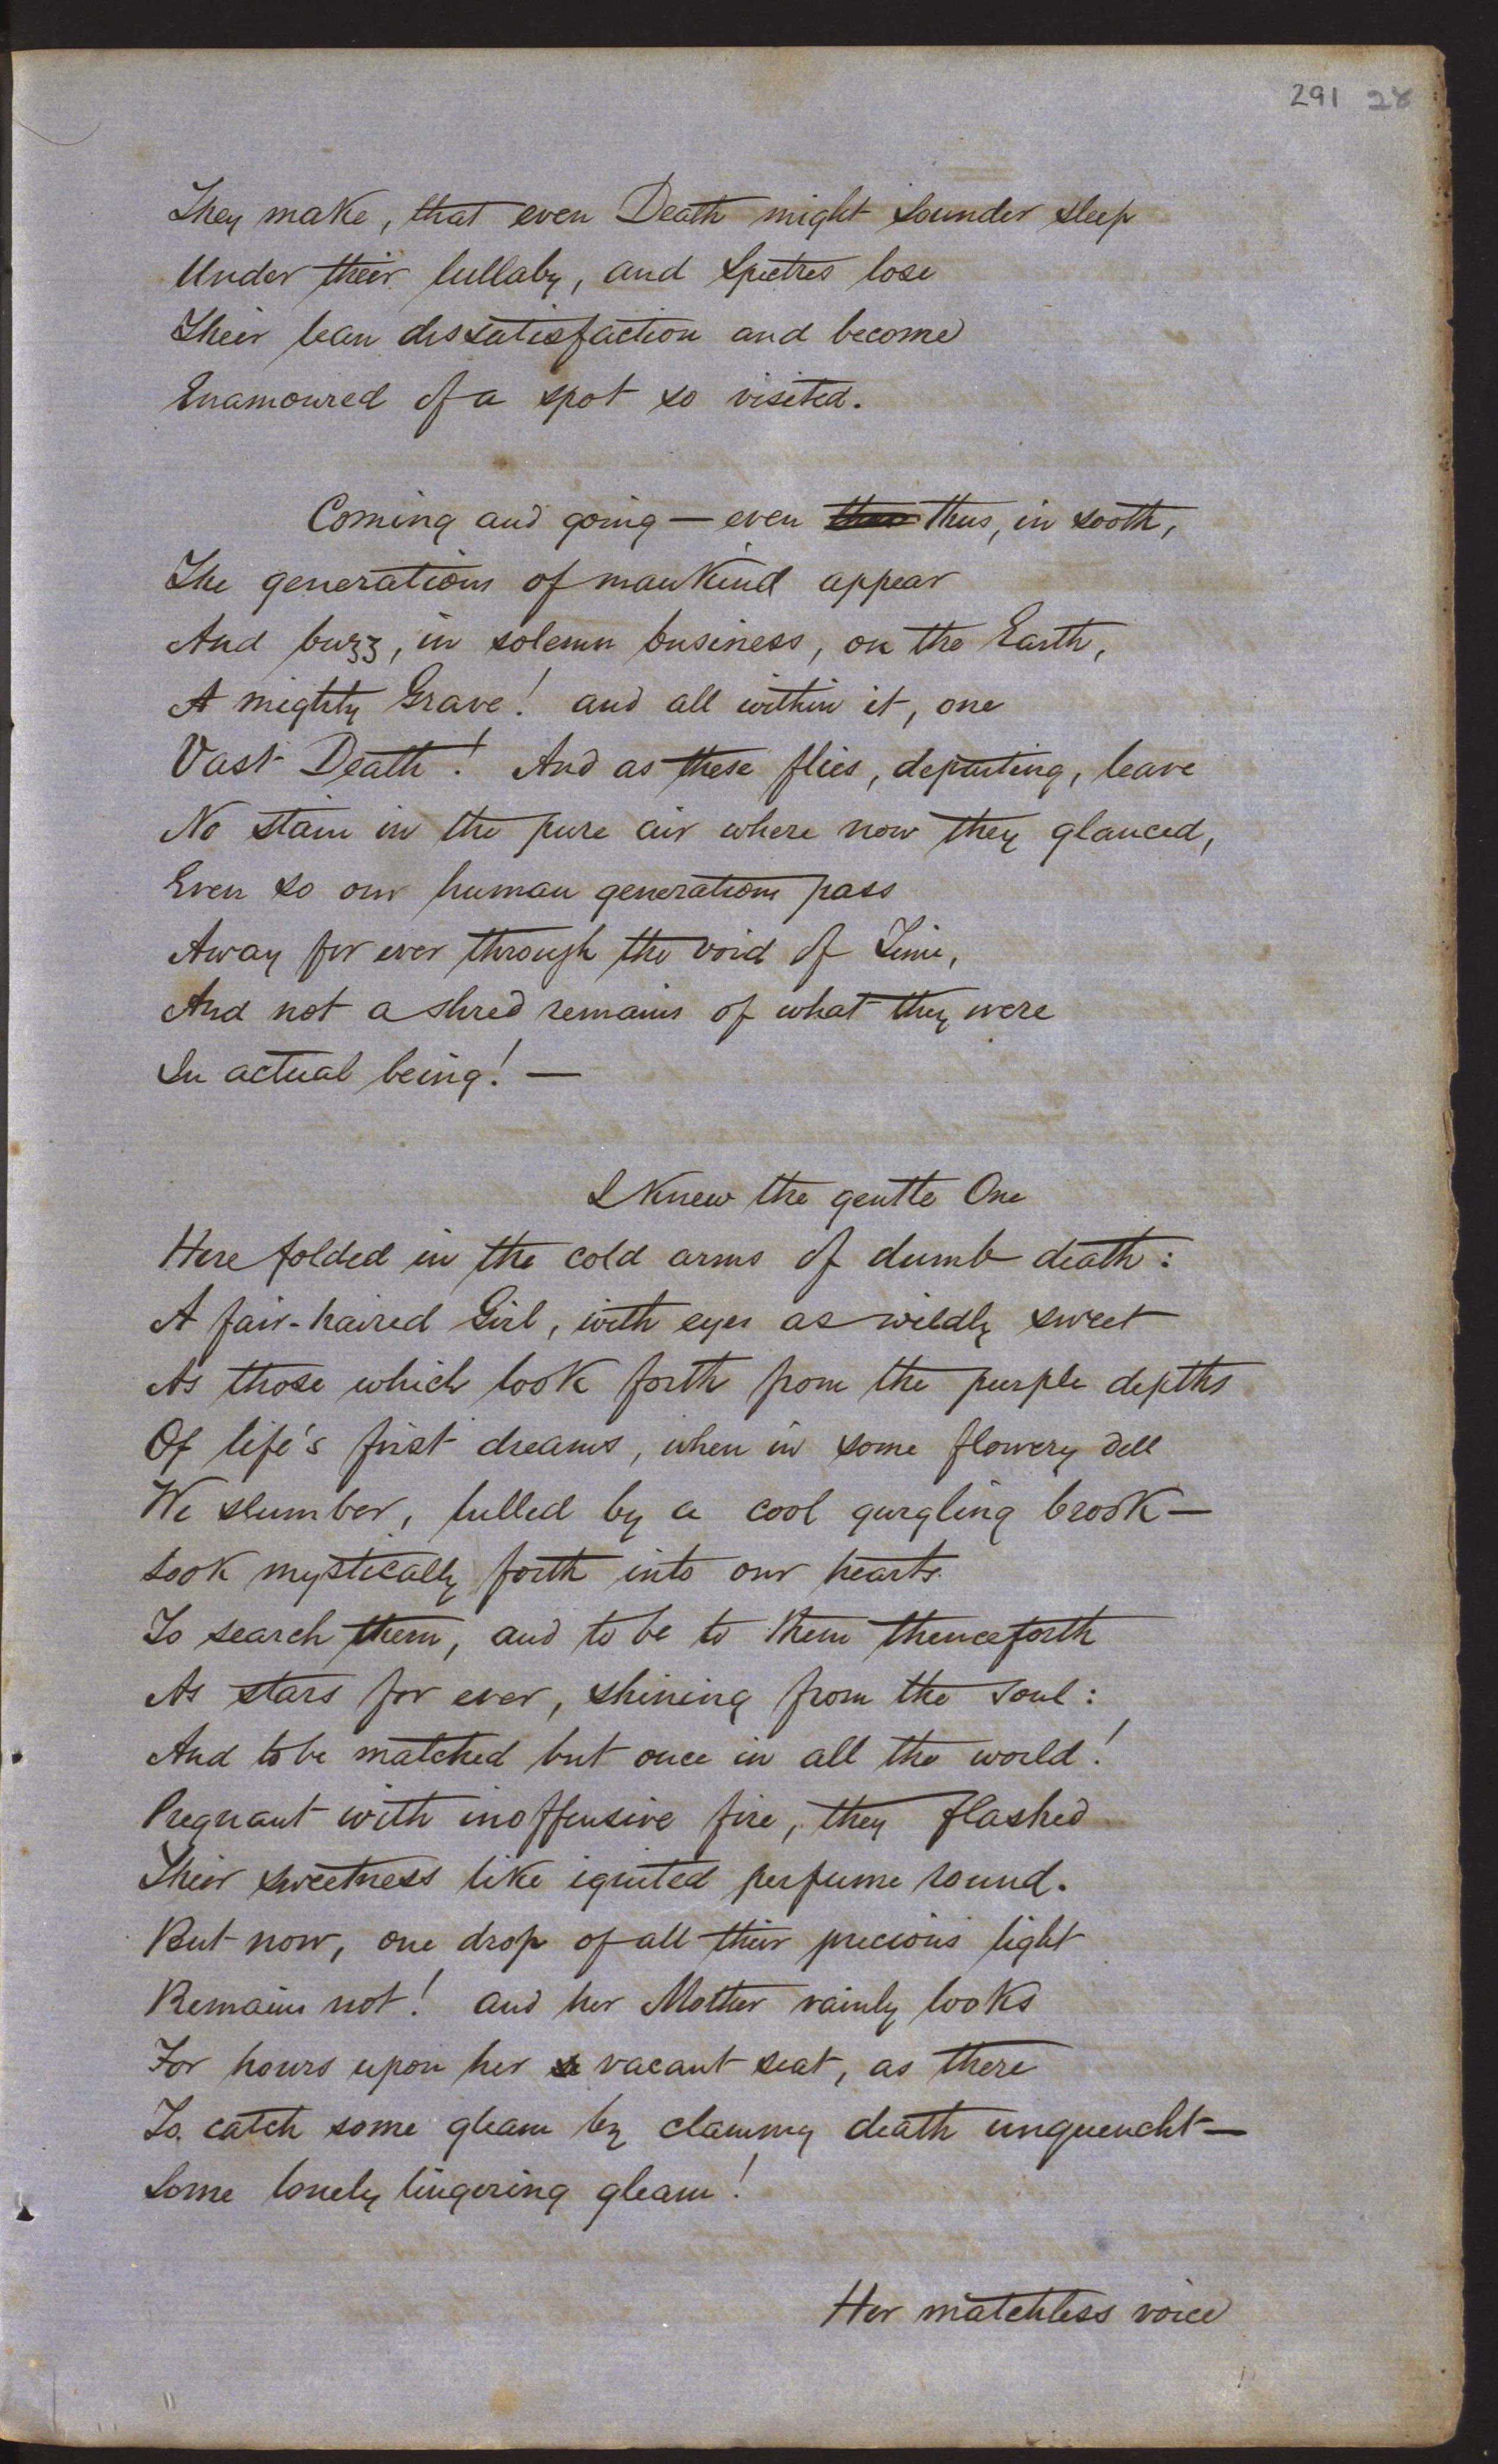 291 28
They make, that even Death might sounder sleep
Under their lullaby, and Spectres lose
Their lean dissatisfaction and become
Enamoured of a spot so visited.
Coming and going — even thus, in sooth,
The generations of mankind appear
And buzz, in solemn business, on the Earth,
A mighty Grave! and all within it, one
Vast Death! And as these flies, departing, leave
No stain in the pure air where now they glanced,
Even so our human generations pass
Away for ever through the void of Time,
And not a shred remains of what they were
In actual being! —
I knew the gentle One
Here folded in the cold arms of dumb death:
A fair-haired Girl, with eyes as wildly sweet
As those which look forth from the purple depths
Of life's first dreams, when in some flowery dell
We slumber, lulled by a cool gurgling brook —
Look mystically forth into our hearts
To search them, and to be to them thenceforth
As stars for ever, shining from the soul:
And to be matched but once in all the world!
Pregnant with inoffensive fire, they flashed
Their sweetness like ignited perfume round.
But now, one drop of all their precious light
Remains not! and her Mother vainly looks
For hours upon her vacant seat, as there
To catch some gleam by clammy death unquencht —
Some lonely lingering gleam!
Her matchless voice